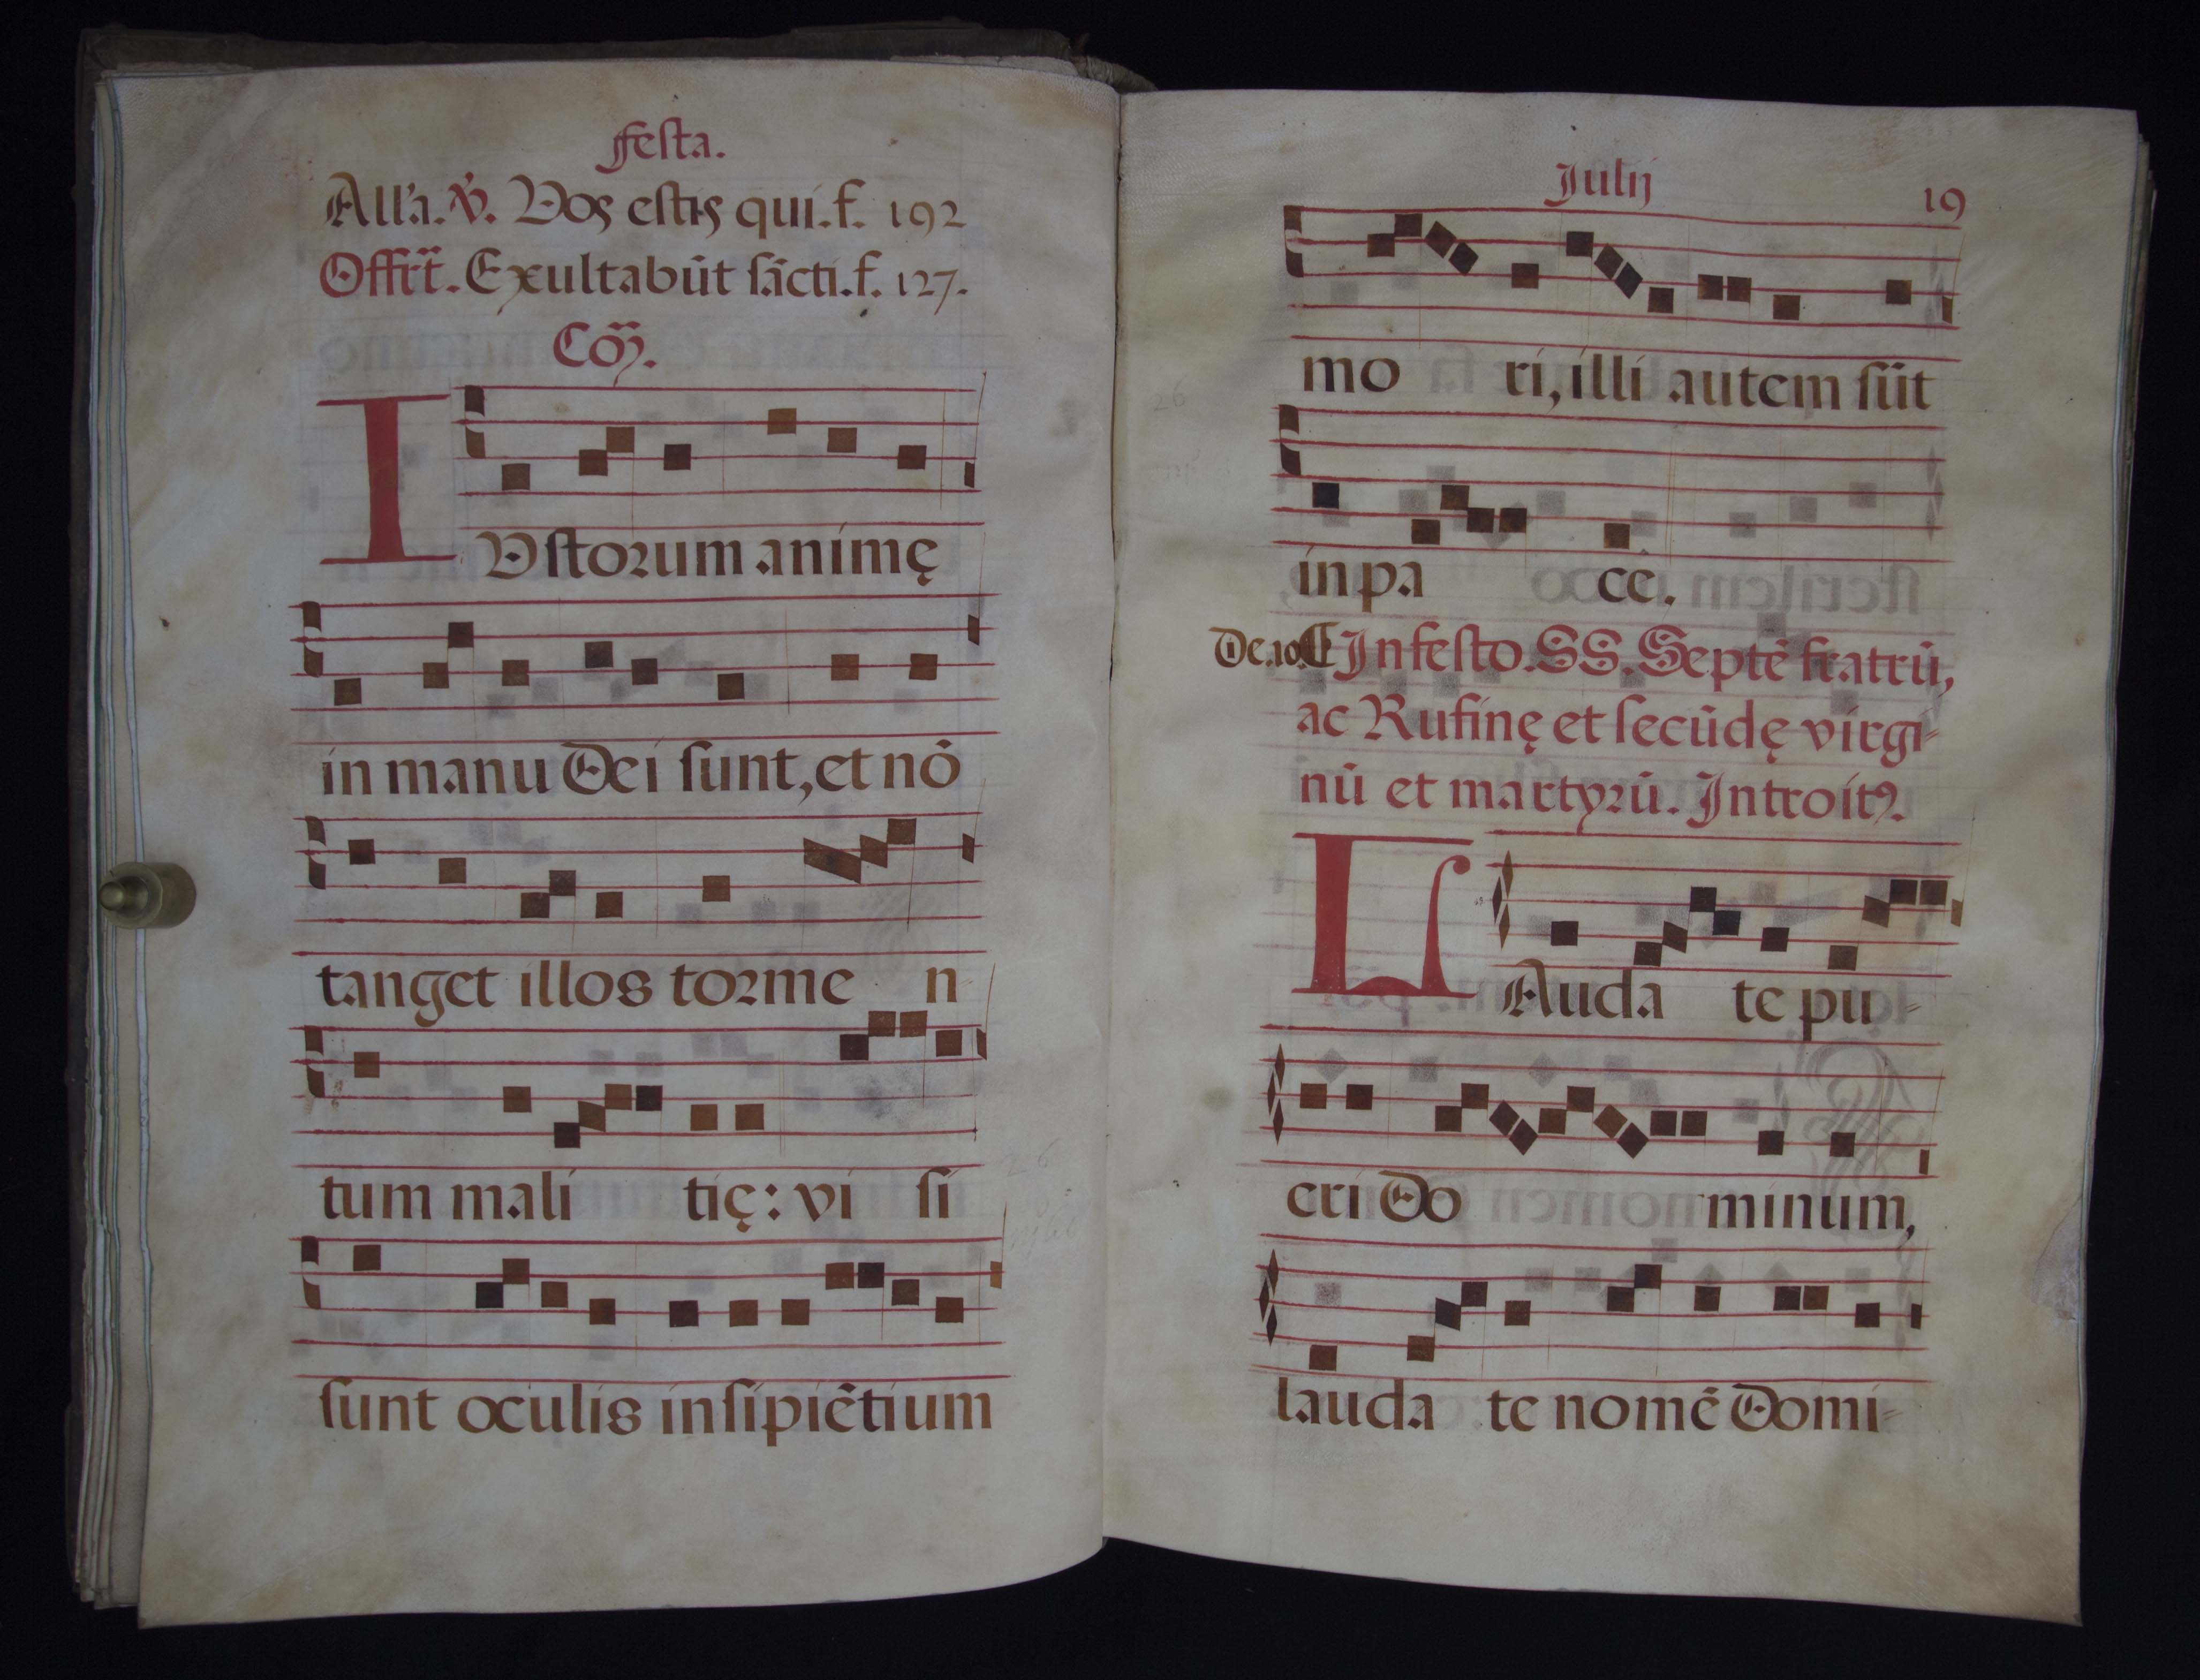 festa.
All'a. ℣. Vos estis qui. f. 192
Offr̃t. Exultabũt sãcti. f. 127.
Cõ.
IVstorum animę
in manu Dei sunt, et nõ
tanget illos torme n-
tum mali tię: vi si
sunt oculis insipiẽtium
Julij 19
mo ri, illi autem sũt
in pa ce.
De. 10. In festo. SS. Septẽ fratrũ,
ac Rufinę et secũdę virgi-
nũ et martyrũ. Introitꝰ.
LAuda te pu-
eri Do minum,
lauda te nomẽ Domi-